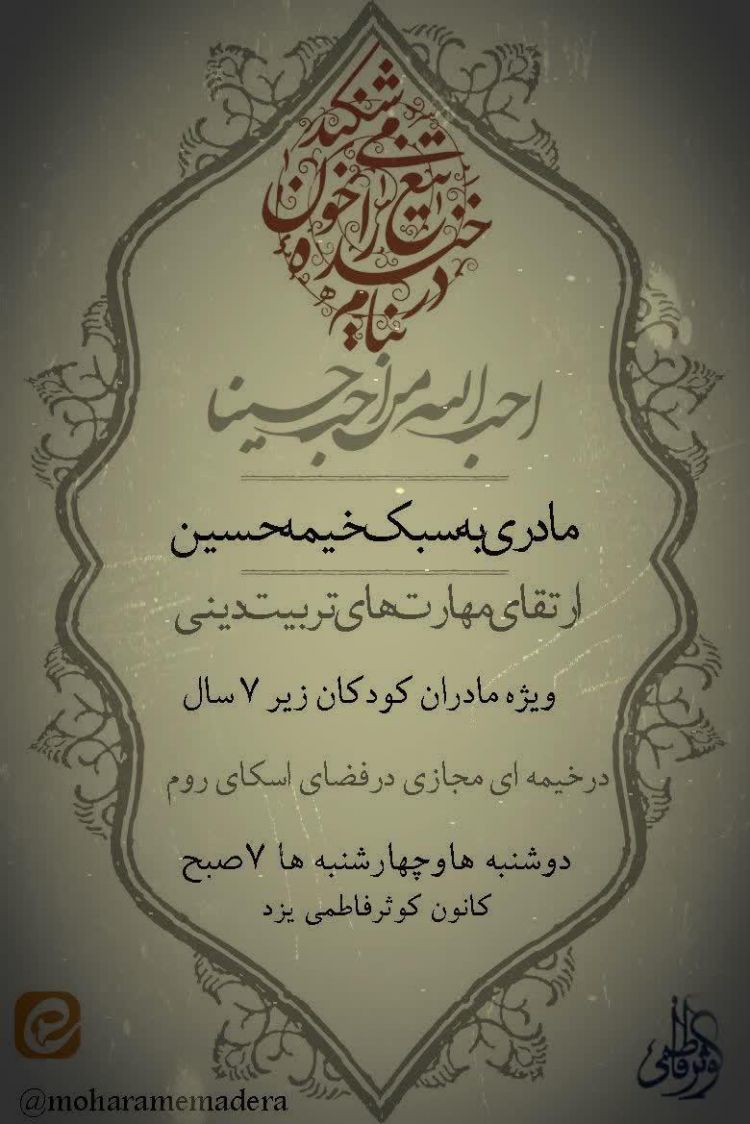 در نیام خنده تا خون را تیغ می‌شکند
احب الله من احب حسینا
مادری به سبک خیمه حسین
ارتقای مهارت های تربیت دینی
ویژه مادران کودکان زیر ۷ سال
در خیمه ای مجازی در فضای اسکای روم
دوشنبه ها و چهارشنبه ها ۷ صبح
کانون کوثر فاطمی یزد
کوثر فاطمی
@moharamemadera